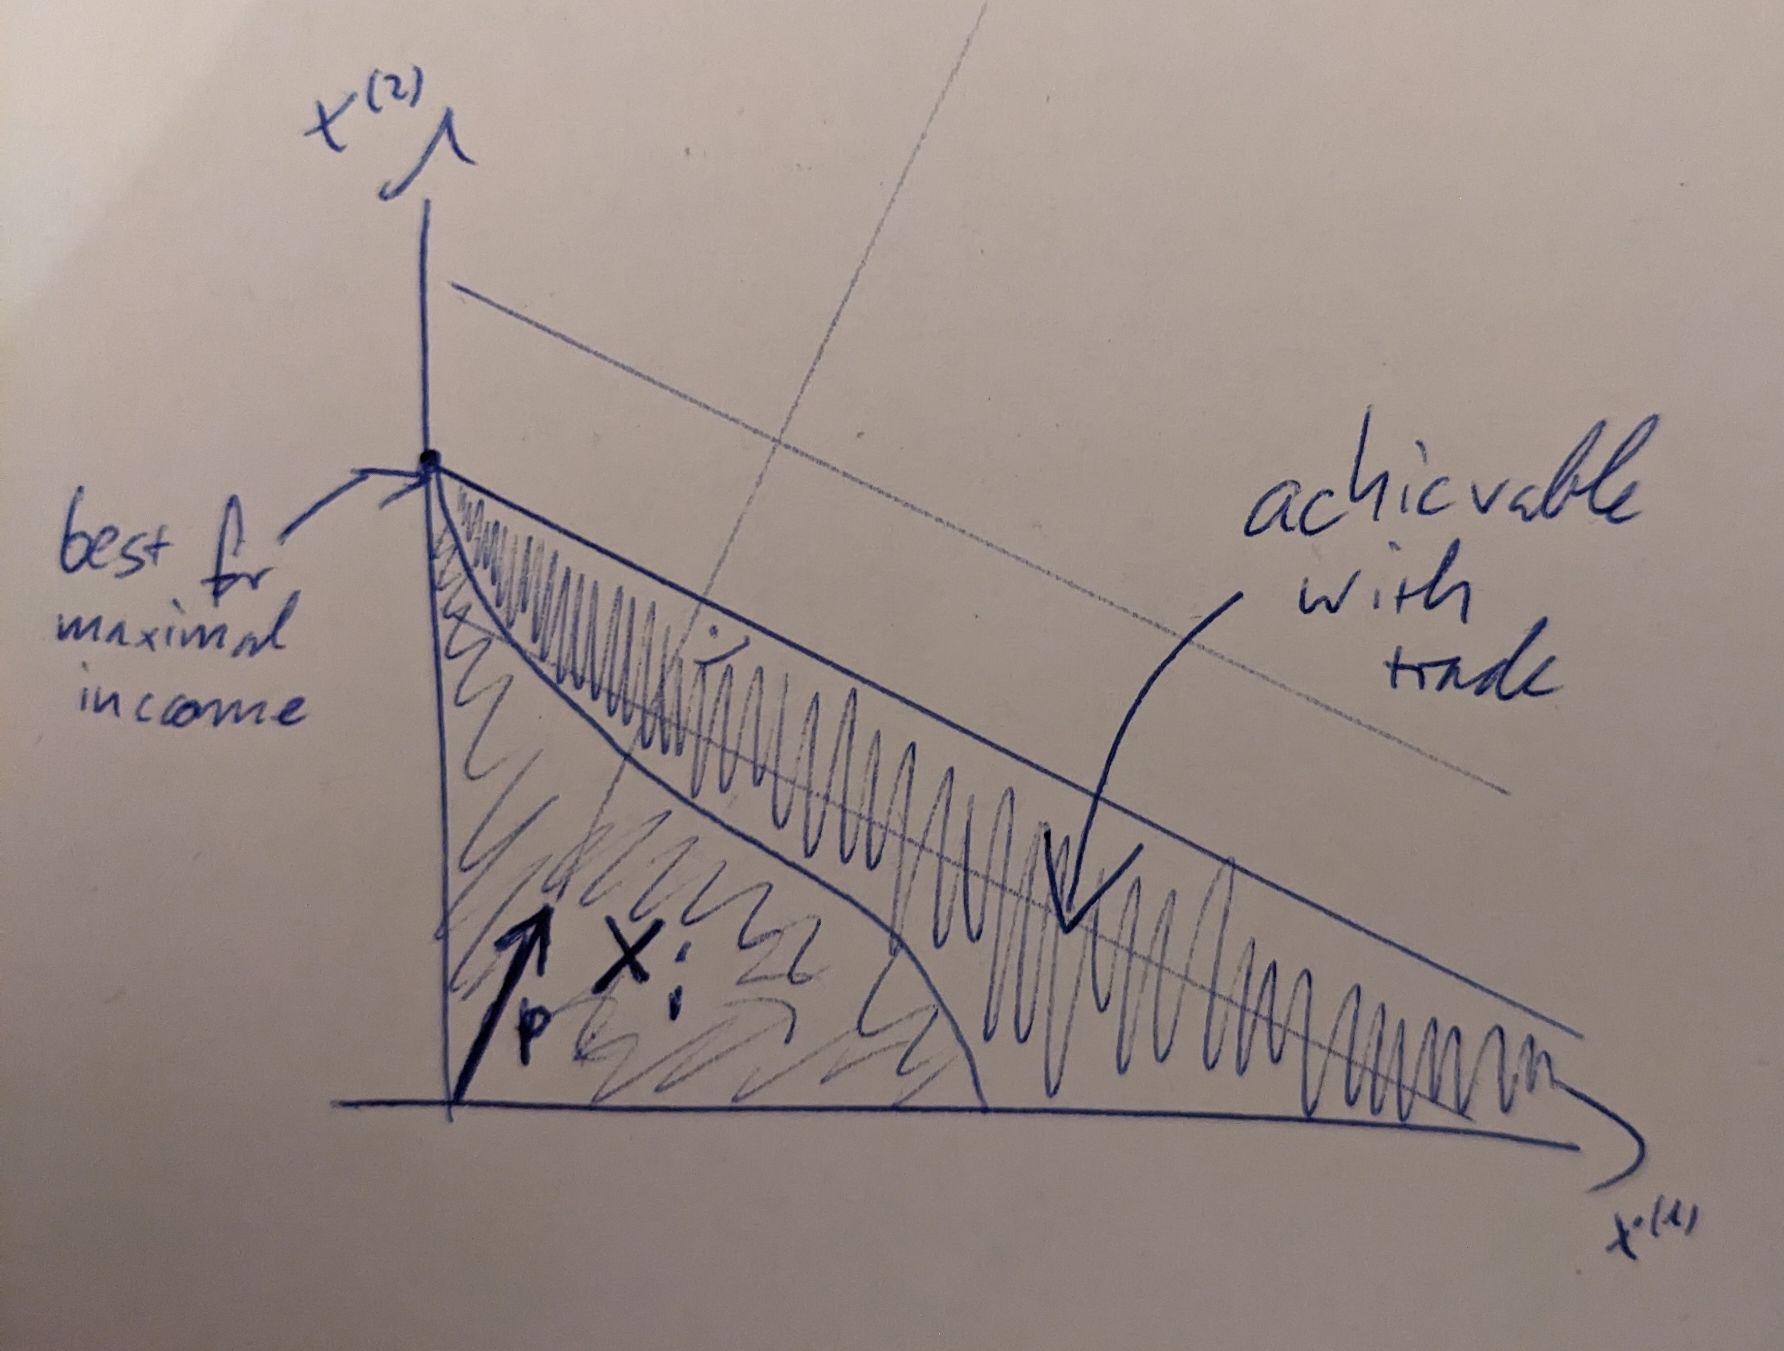 x(2)
best for
maximal
income
achievable
with
trade
Xi
p
x(1)